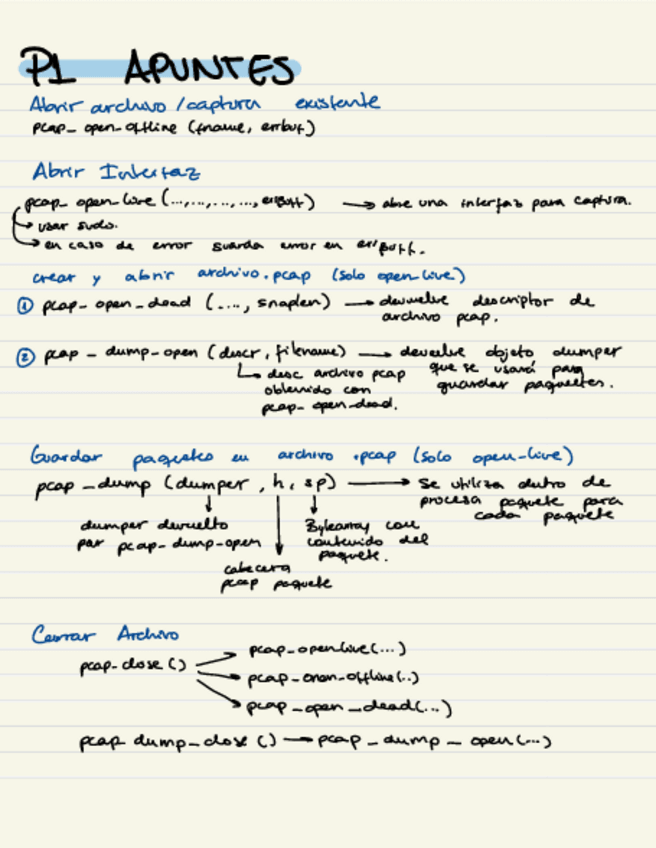 P1 APUNTES
Abrir archivo/captura existente
pcap_open_offline (fname, errbuf)
Abrir Interfaz
pcap_open_live (...,...,...,...,errbuff) → abre una interfaz para captura.
→ usar sudo.
→ en caso de error guarda error en errbuff.
crear y abrir archivo.pcap (solo open-live)
① pcap_open_dead (...., snaplen) → devuelve descriptor de
archivo pcap.
② pcap_dump_open (descr, filename) → devuelve objeto dumper
que se usará para
guardar paquetes.
desc archivo pcap
obtenido con
pcap_open_dead.
Guardar paquetes en archivo .pcap (solo open-live)
pcap_dump (dumper, h, sp) → se utiliza dentro de
procesa paquete para
cada paquete
dumper devuelto
por pcap-dump-open
Bytearray con
contenido del
paquete.
cabecera
pcap paquete
Cerrar Archivo
pcap_close ()
pcap_open live (...)
pcap_open_offline (..)
pcap_open_dead (...)
pcap dump_close () → pcap_dump_open (...)